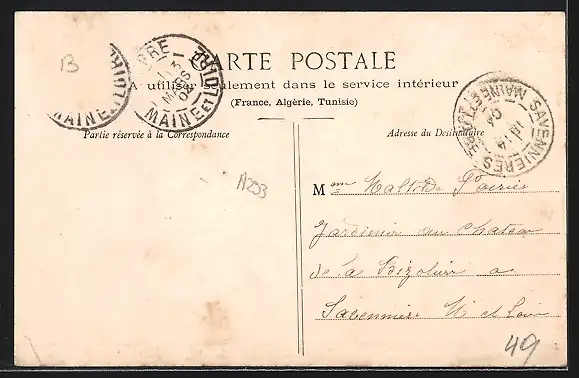 B
CARTE POSTALE
A utiliser seulement dans le service intérieur
(France, Algérie, Tunisie)
MAINE ET LOIRE
MARS
04
MAINE ET LOIRE
SAVENNIERES
04
MAINE ET LOIRE
Partie réservée à la Correspondance
Adresse du Destinataire
A253
Mme Matilde Poirier
Jardinier au Chateau
de la Bizolière a
Savennière M et Loire
49